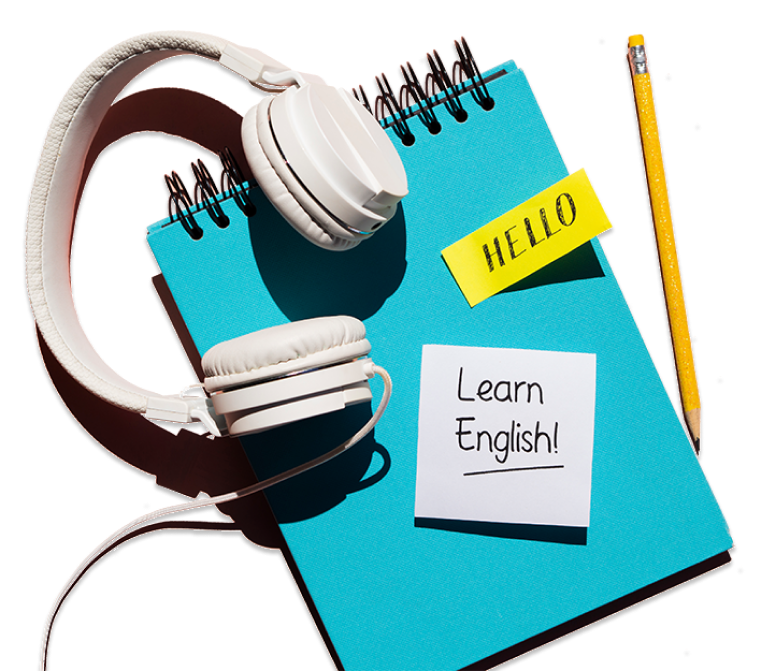 HELLO
Learn
English!